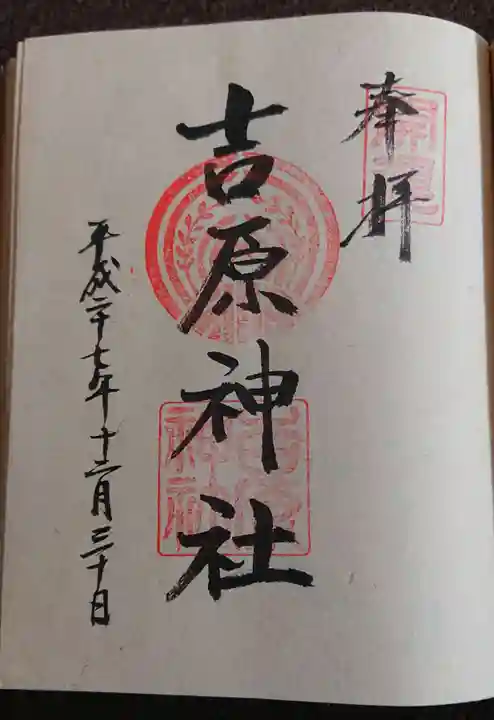 奉拝
吉原神社
平成二十七年十二月三十日
吉原神社